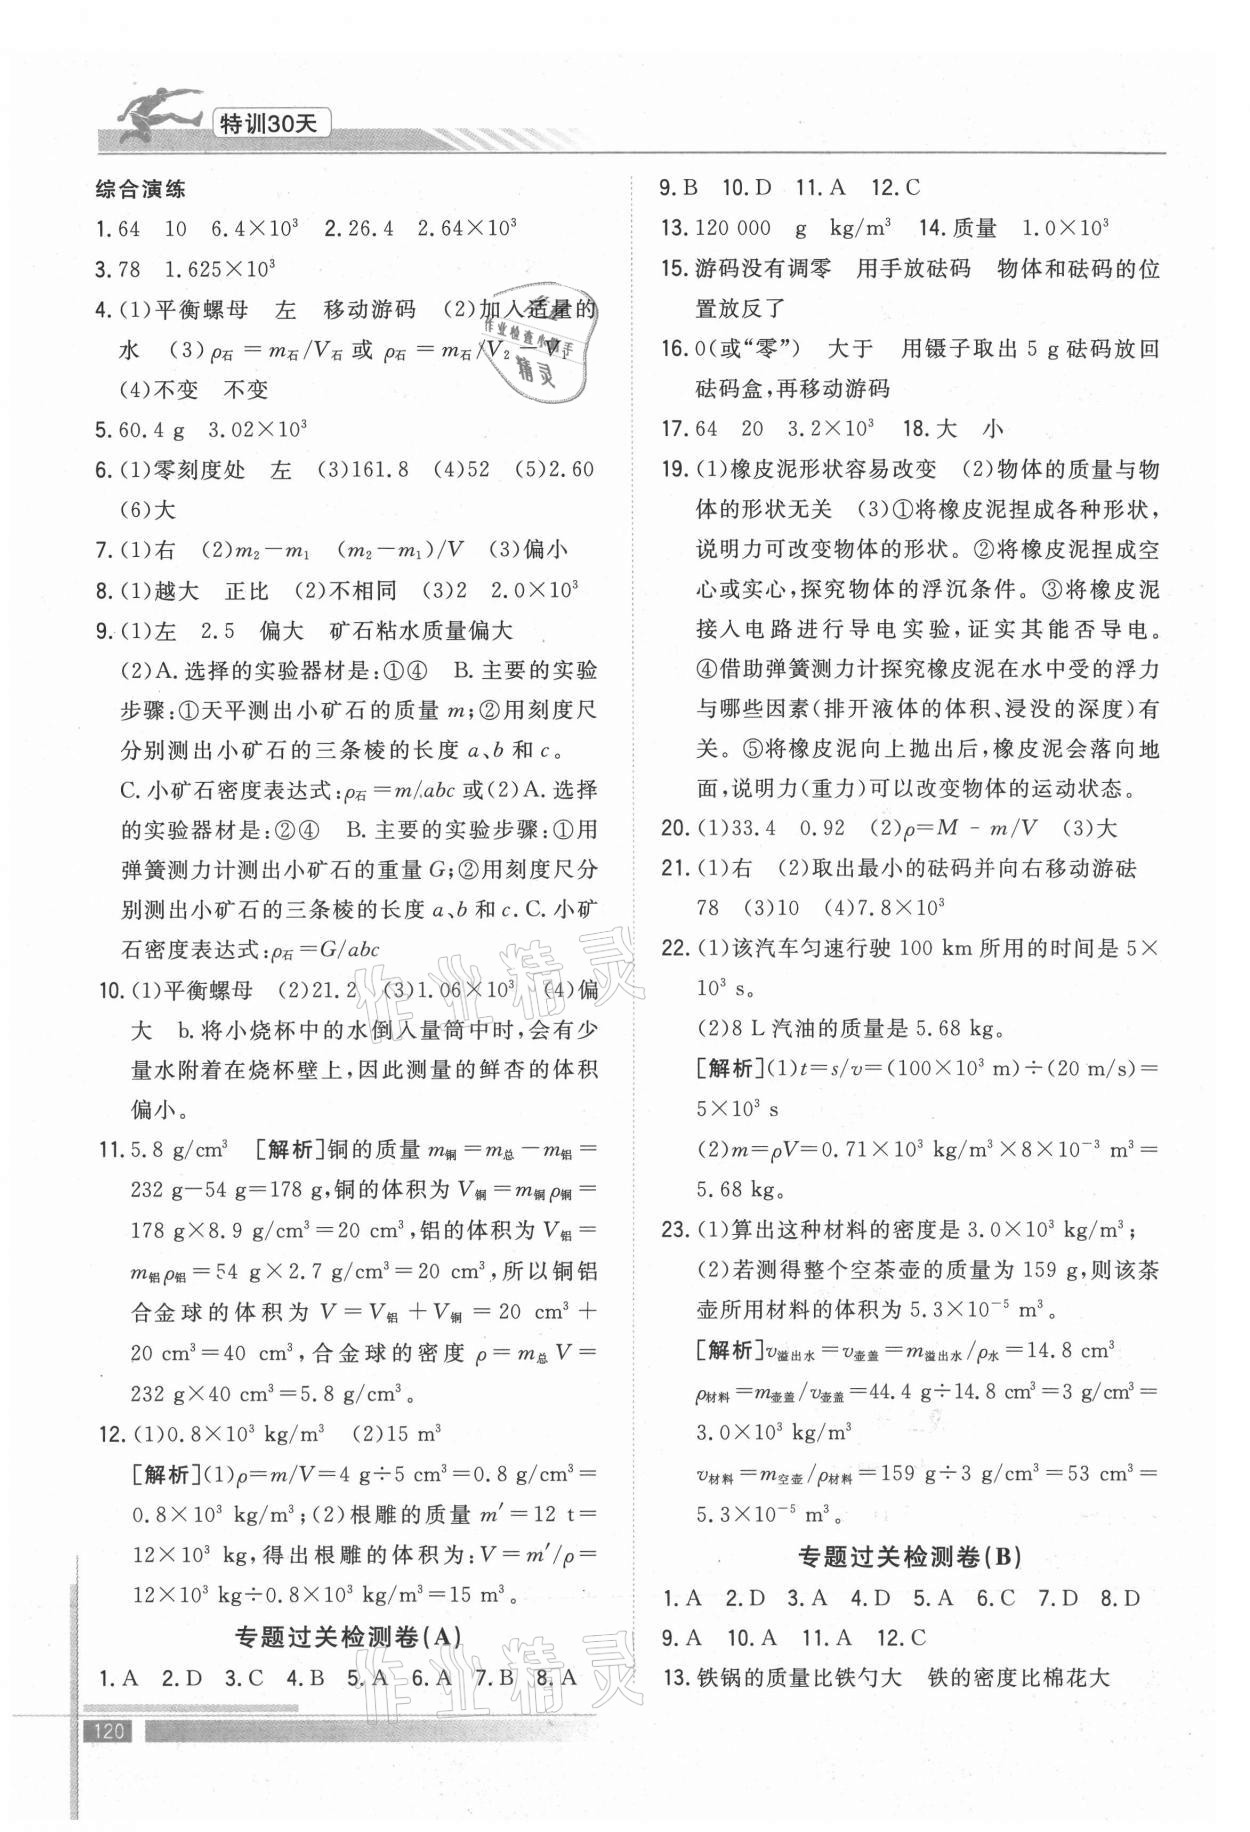 特训30天
综合演练
1. 64　10　6.4×10³　2. 26.4　2.64×10³
3. 78　1.625×10³
4. (1)平衡螺母　左　移动游码　(2)加入适量的
水　(3)ρ石＝m石/V石 或 ρ石＝m石/V₂－V₁
(4)不变　不变
5. 60.4 g　3.02×10³
6. (1)零刻度处　左　(3)161.8　(4)52　(5)2.60
(6)大
7. (1)右　(2)m₂－m₁　(m₂－m₁)/V　(3)偏小
8. (1)越大　正比　(2)不相同　(3)2　2.0×10³
9. (1)左　2.5　偏大　矿石粘水质量偏大
(2)A. 选择的实验器材是:①④　B. 主要的实验
步骤:①天平测出小矿石的质量 m;②用刻度尺
分别测出小矿石的三条棱的长度 a、b 和 c。
C. 小矿石密度表达式:ρ石＝m/abc 或(2)A. 选择
的实验器材是:②④　B. 主要的实验步骤:①用
弹簧测力计测出小矿石的重量 G;②用刻度尺分
别测出小矿石的三条棱的长度 a、b 和 c. C. 小矿
石密度表达式:ρ石＝G/abc
10. (1)平衡螺母　(2)21.2　(3)1.06×10³　(4)偏
大　b. 将小烧杯中的水倒入量筒中时,会有少
量水附着在烧杯壁上,因此测量的鲜杏的体积
偏小。
11. 5.8 g/cm³　[解析]铜的质量 m铜＝m总－m铝＝
232 g－54 g＝178 g,铜的体积为 V铜＝m铜ρ铜＝
178 g×8.9 g/cm³＝20 cm³,铝的体积为 V铝＝
m铝ρ铝＝54 g×2.7 g/cm³＝20 cm³,所以铜铝
合金球的体积为 V＝V铝＋V铜＝20 cm³＋
20 cm³＝40 cm³,合金球的密度 ρ＝m总V＝
232 g×40 cm³＝5.8 g/cm³。
12. (1)0.8×10³ kg/m³　(2)15 m³
[解析](1)ρ＝m/V＝4 g÷5 cm³＝0.8 g/cm³＝
0.8×10³ kg/m³;(2)根雕的质量 m′＝12 t＝
12×10³ kg,得出根雕的体积为:V＝m′/ρ＝
12×10³ kg÷0.8×10³ kg/m³＝15 m³。
专题过关检测卷(A)
1. A　2. D　3. C　4. B　5. A　6. A　7. B　8. A
9. B　10. D　11. A　12. C
13. 120 000　g　kg/m³　14. 质量　1.0×10³
15. 游码没有调零　用手放砝码　物体和砝码的位
置放反了
16. 0(或“零”)　大于　用镊子取出 5 g 砝码放回
砝码盒,再移动游码
17. 64　20　3.2×10³　18. 大　小
19. (1)橡皮泥形状容易改变　(2)物体的质量与物
体的形状无关　(3)①将橡皮泥捏成各种形状,
说明力可改变物体的形状。②将橡皮泥捏成空
心或实心,探究物体的浮沉条件。③将橡皮泥
接入电路进行导电实验,证实其能否导电。
④借助弹簧测力计探究橡皮泥在水中受的浮力
与哪些因素(排开液体的体积、浸没的深度)有
关。⑤将橡皮泥向上抛出后,橡皮泥会落向地
面,说明力(重力)可以改变物体的运动状态。
20. (1)33.4　0.92　(2)ρ＝M－m/V　(3)大
21. (1)右　(2)取出最小的砝码并向右移动游砝
78　(3)10　(4)7.8×10³
22. (1)该汽车匀速行驶 100 km 所用的时间是 5×
10³ s。
(2)8 L 汽油的质量是 5.68 kg。
[解析](1)t＝s/v＝(100×10³ m)÷(20 m/s)＝
5×10³ s
(2)m＝ρV＝0.71×10³ kg/m³×8×10⁻³ m³＝
5.68 kg。
23. (1)算出这种材料的密度是 3.0×10³ kg/m³;
(2)若测得整个空茶壶的质量为 159 g,则该茶
壶所用材料的体积为 5.3×10⁻⁵ m³。
[解析]v溢出水＝v壶盖＝m溢出水/ρ水＝14.8 cm³
ρ材料＝m壶盖/v壶盖＝44.4 g÷14.8 cm³＝3 g/cm³＝
3.0×10³ kg/m³
v材料＝m空壶/ρ材料＝159 g÷3 g/cm³＝53 cm³＝
5.3×10⁻⁵ m³。
专题过关检测卷(B)
1. A　2. D　3. A　4. D　5. A　6. C　7. D　8. D
9. A　10. A　11. A　12. C
13. 铁锅的质量比铁勺大　铁的密度比棉花大
120
作业精灵
作业精灵